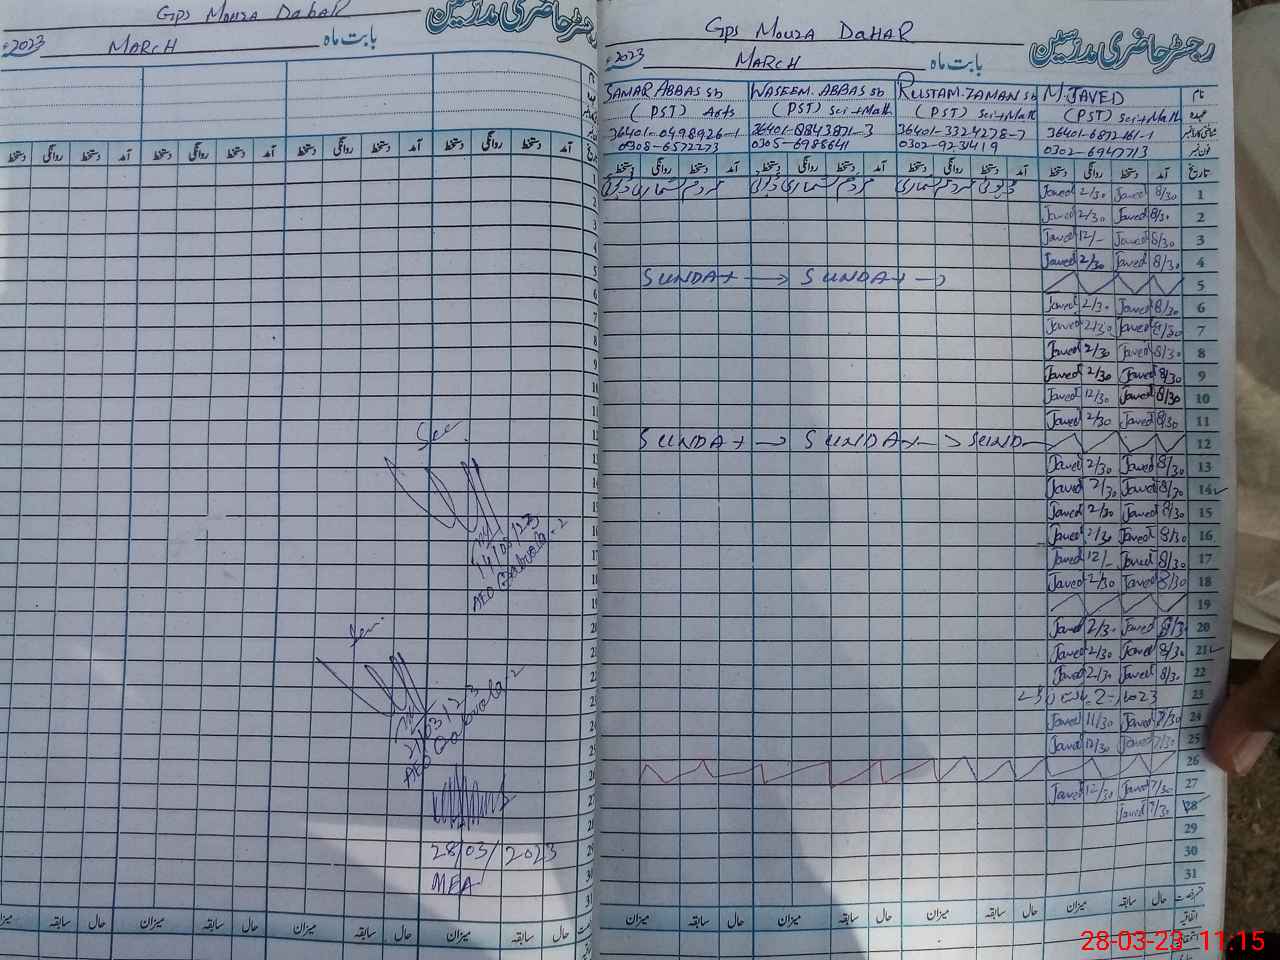 Gps Mouza Dahar
رجسٹر حاضری مدرسین
2023 MARCH بابت ماہ
دستخط روانگی دستخط آمد دستخط روانگی دستخط آمد دستخط روانگی دستخط آمد دستخط روانگی دستخط آمد
See
14/03/23
AEO
21/03/23
AEO
28/03/2023
MEA
میزان سابقہ حال میزان سابقہ حال میزان سابقہ حال
Gps Mouza DAHAR
رجسٹر حاضری مدرسین
2023 MARCH بابت ماہ
SAMAR ABBAS sb WASEEM. ABBAS sb RUSTAM. ZAMAN sb M. JAVED نام
(PST) Arts (PST) Sci+Math (PST) Sci+Math (PST) Sci+Math عہدہ
36401-0498926-1 36401-8843871-3 36401-3324278-7 36401-6872161-1
0308-6572273 0305-6988641 0302-923419 0302-6947713
دستخط روانگی دستخط آمد دستخط روانگی دستخط آمد دستخط روانگی دستخط آمد دستخط روانگی دستخط آمد تاریخ
Javed 2/30 Javed 8/30 1
Javed 2/30 Javed 8/30 2
Javed 12/- Javed 8/30 3
Javed 2/30 Javed 8/30 4
SUNDAY → SUNDAY → 5
Javed 2/30 Javed 8/30 6
Javed 2/30 Javed 8/30 7
Javed 2/30 Javed 8/30 8
Javed 2/30 Javed 8/30 9
Javed 12/30 Javed 8/30 10
Javed 2/30 Javed 8/30 11
SUNDAY → SUNDAY → SUND 12
Javed 2/30 Javed 8/30 13
Javed 2/30 Javed 8/30 14
Javed 2/30 Javed 8/30 15
Javed 2/30 Javed 8/30 16
Javed 12/- Javed 8/30 17
Javed 2/30 Javed 8/30 18
19
Javed 2/30 Javed 8/30 20
Javed 2/30 Javed 8/30 21
Javed 2/30 Javed 8/30 22
2023 23
Javed 11/30 Javed 7/30 24
Javed 12/30 Javed 7/30 25
26
Javed 12/30 Javed 7/30 27
Javed 7/30 28
29
30
31
میزان سابقہ حال میزان سابقہ حال میزان سابقہ حال میزان سابقہ حال
28-03-23 11:15